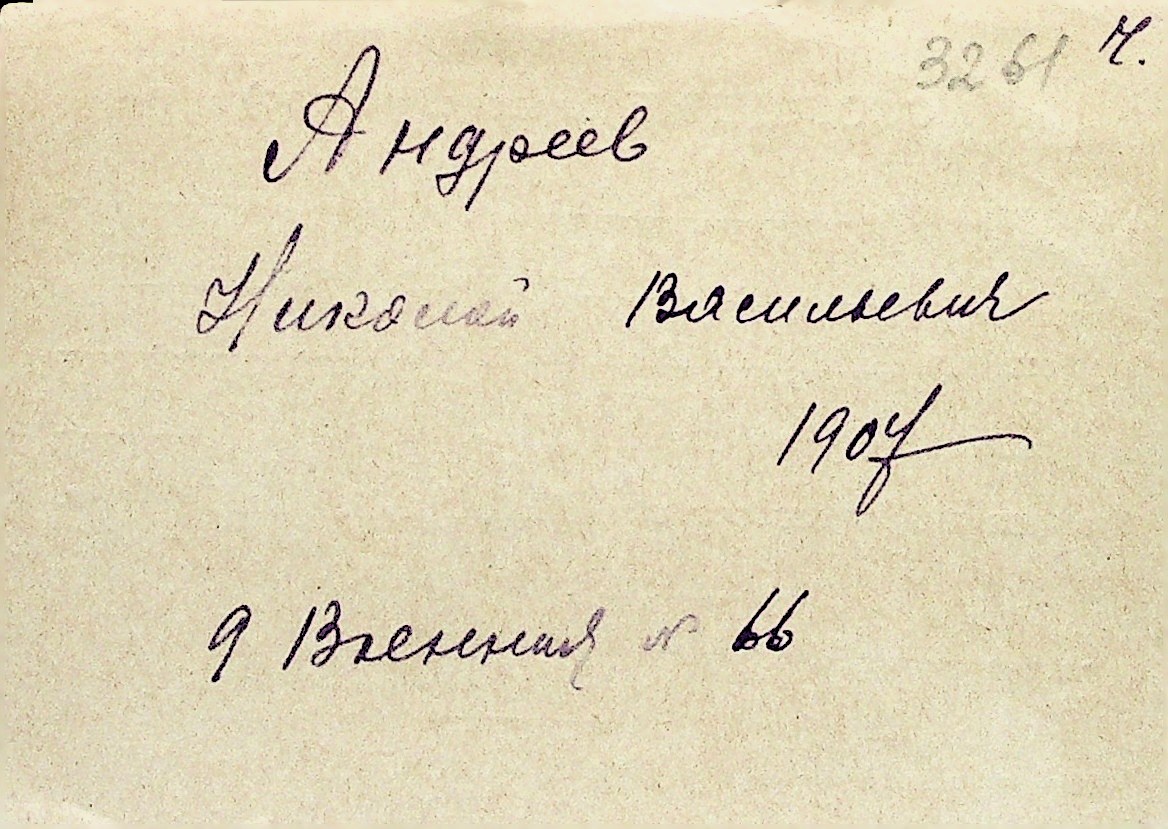 3261 ч.
Андреев
Николай Васильевич
1907
9 Военная № 66